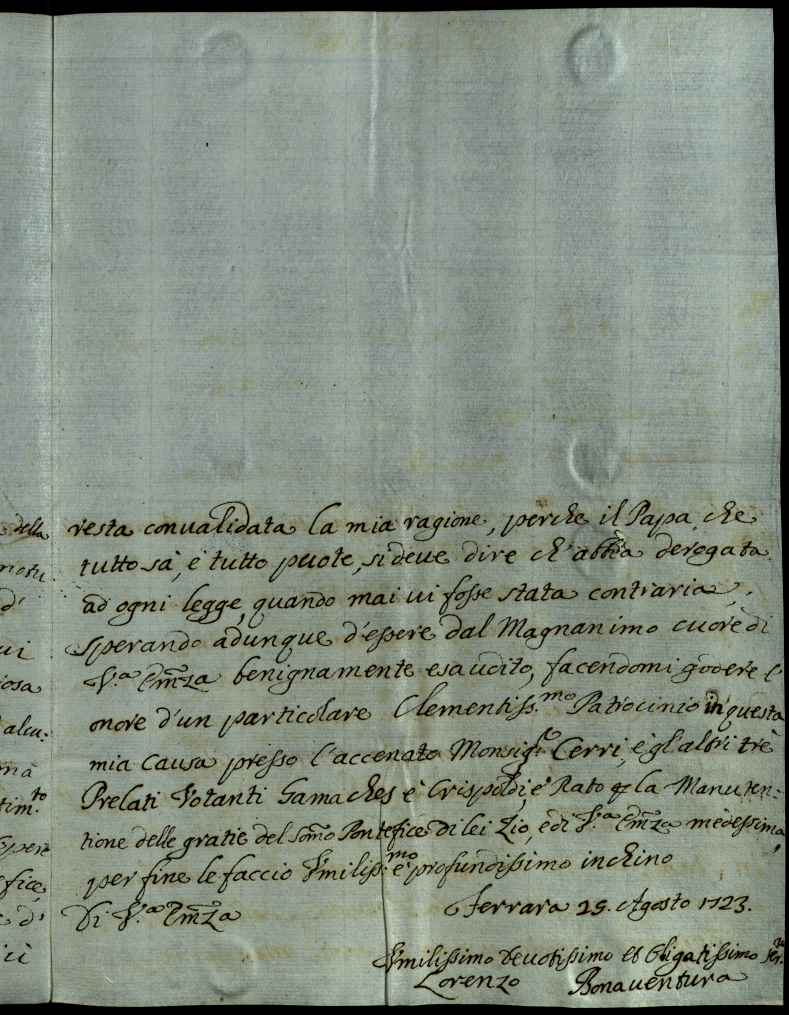 resta conualidata la mia ragione, perche il Papa che
tutto sà, e tutto puote, si deue dire ch'abbia derogata
ad ogni legge, quando mai ui fosse stata contraria,
sperando adunque d'essere dal Magnanimo cuore di
V.a Em̃za benignamente esaudito, facendomi godere l'
onore d'un particolare Clementiss.mo Patrocinio in questa
mia causa presso l'accenato Monsig.r Cerri, è gl'altri trè
Prelati Votanti Gamaches è Crispoldi, è Rato la Manuten:
tione delle gratie del som̃o Pontefice di lei Zio, e di V.a Em̃za medessima,
per fine le faccio Vmiliss.mo e profundissimo inchino
Di V.a Em̃za
Ferrara 25. Agosto 1723.
Vmilissimo Deuotissimo et Obligatissimo Ser.
Lorenzo Bonauentura
della
d'
ui
iosa
alcu:
tim.to
fice
d'